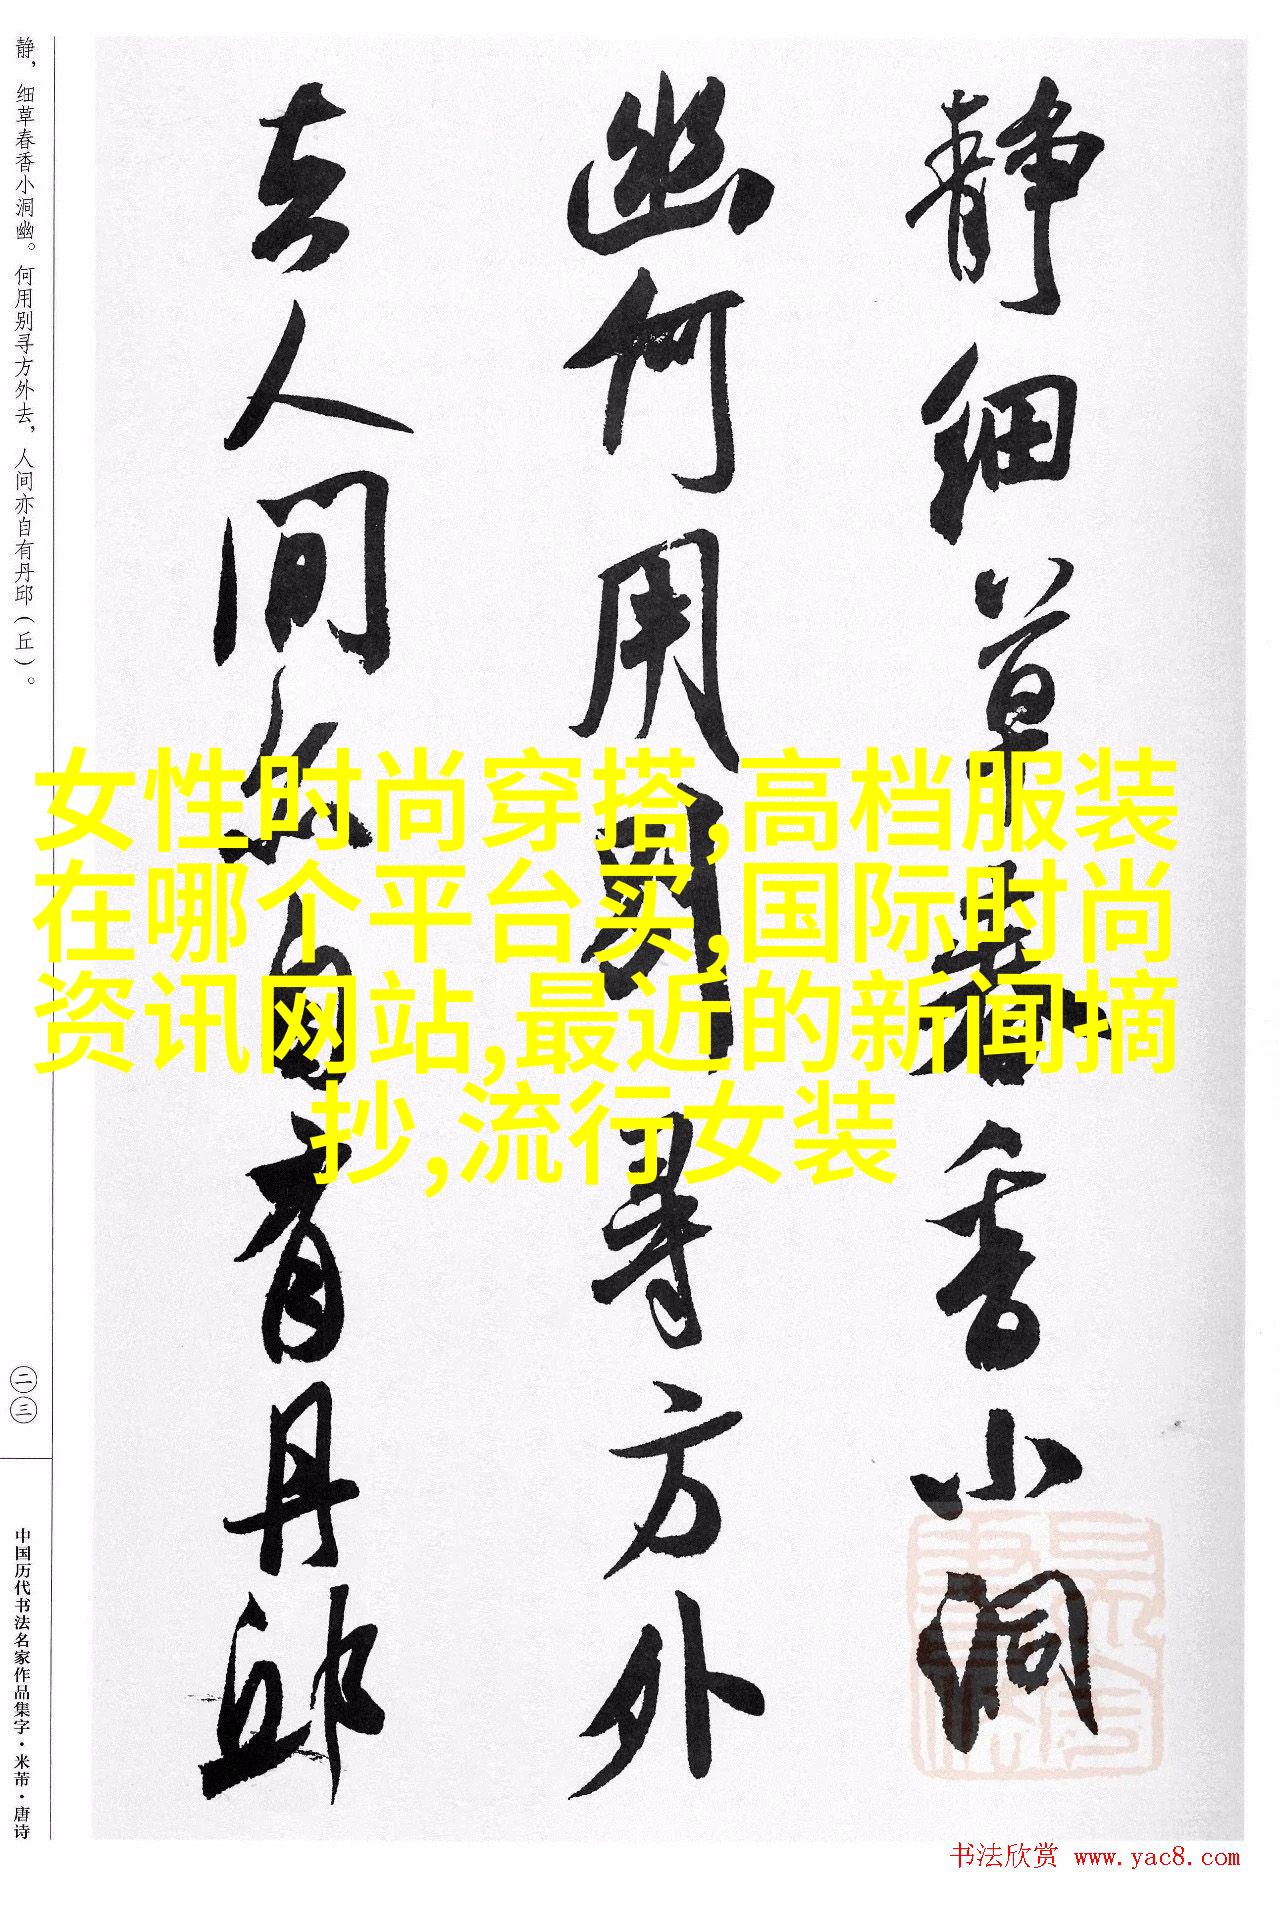 静细草春香小洞
幽何用别寻方外
去人间亦自有丹邱
静，细草春香小洞幽。何用别寻方外去，人间亦自有丹邱（丘）。
二三
中国历代书法名家作品集字·米芾·唐诗
女性时尚穿搭,高档服装
在哪个平台买,国际时尚
资讯网站,最近的新闻摘
抄,流行女装
书法欣赏 www.yac8.com